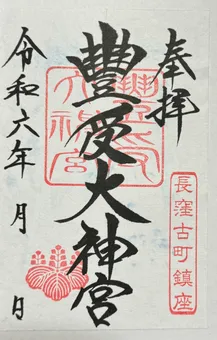 奉拝
豐受大神宮
長窪古町鎮座
令和六年 月 日